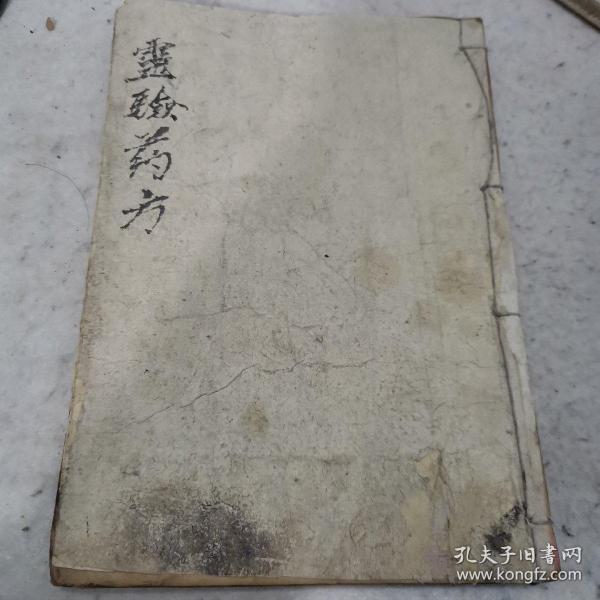 靈驗药方
孔夫子旧書网
www.kongfz.com